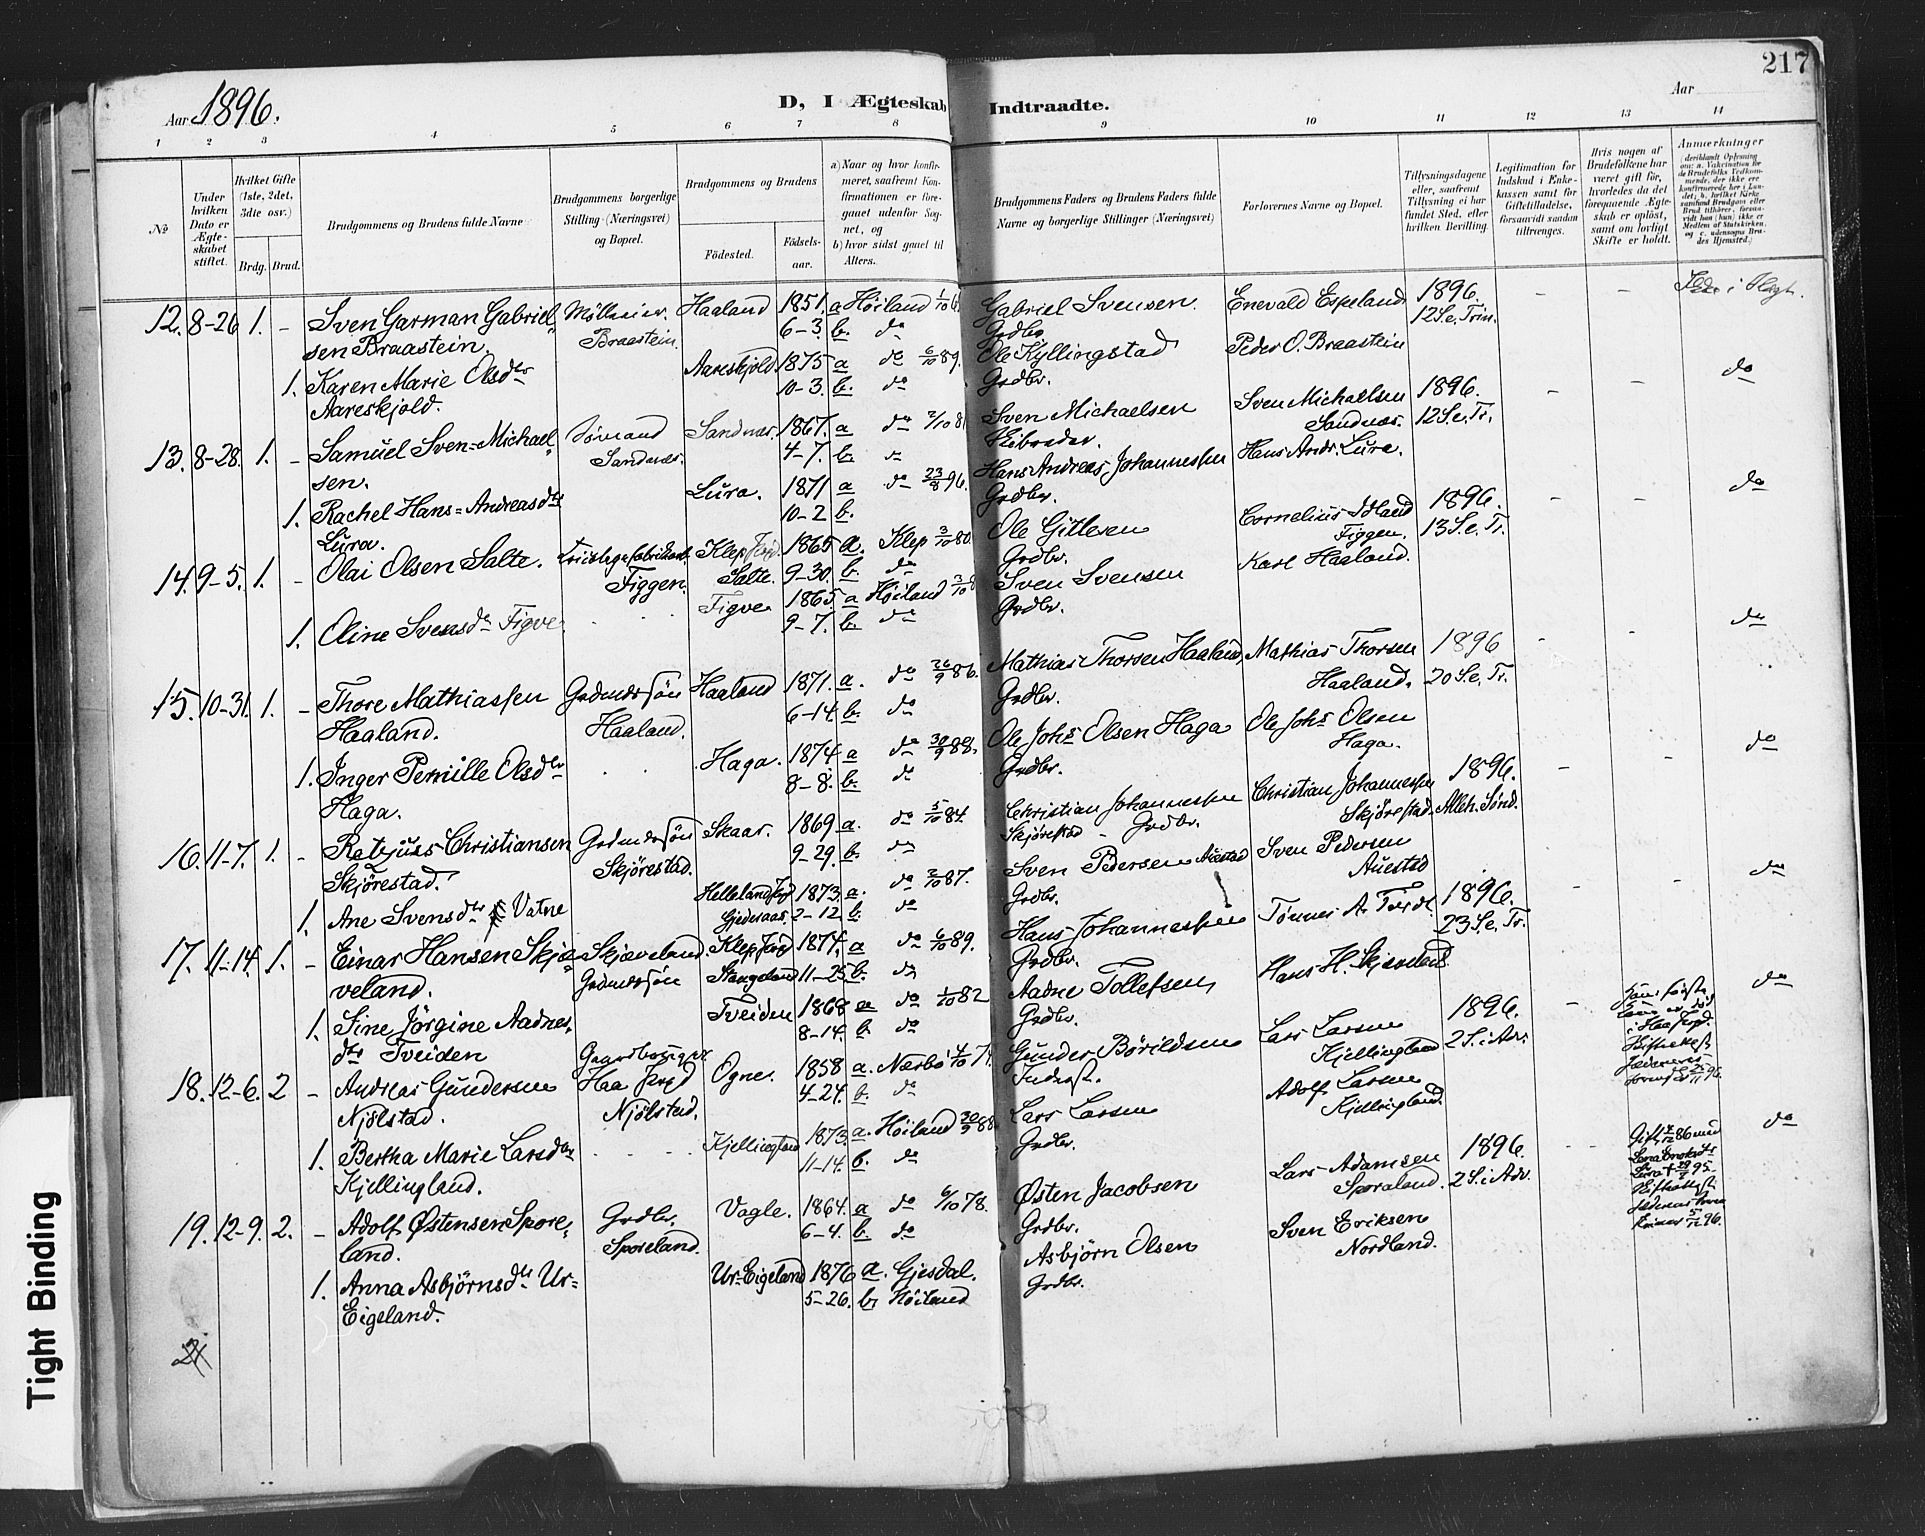 217
Aar 1896.
D, I Ægteskab Indtraadte.
Aar
1 2 3 4 5 6 7 8 9 10 11 12 13 14
No
Under hvilken Dato er Ægteskabet stiftet.
Hvilket Gifte (1ste, 2det, 3dte osv.)
Brdg. Brud.
Brudgommens og Brudens fulde Navne
Brudgommens borgerlige Stilling (Næringsvei) og Bopæl.
Brudgommens og Brudens
Fødested.
Fødselsaar.
a) Naar og hvor konfirmeret, saafremt Konfirmationen er foregaaet udenfor Sognet, og
b) hvor sidst gaaet til Alters.
Brudgommens Faders og Brudens Faders fulde Navne og borgerlige Stillinger (Næringsvei)
Forlovernes Navne og Bopæl.
Tillysningsdagene eller, saafremt Tillysning ei har fundet Sted, efter hvilken Bevilling.
Legitimation for Indskud i Enkekassen samt for Giftetilladelse, forsaavidt saadan tiltrænges.
Hvis nogen af Brudefolkene har været gift før, hvorledes da det foregaaende Ægteskab er opløst, samt om lovligt Skifte er holdt.
Anmerkninger
12. 8-26 1. - Sven Garman Gabriel- Haaland 1851. a Høiland Gabriel Svensen. Enevald Espeland 1896. - -
sen Braastein. Braastein. 6-3 b. do Grdbr. 12 S. e. Trin.
1. Karen Marie Olsdtr Aareskjold 1875 a do 6/10 89. Ole Kyllingstad Peder O. Braastein
Aareskjold. 10-3. b. do Grdbr. do
13. 8-28. 1. - Samuel Sven-Michael- Sømand Sandnæs. 1867. a do Sven Michaelsen Sven Michaelsen 1896. - -
sen. Sandnæs. 4-7. b. Sandnæs. 12 S. e. Tr.
1. Rachel Hans-Andreasdtr Lura. 1871 a do 23/8 96. Hans Andreas Johannessen Hans Andr. Lura.
Lura. 10-2 b. Grdbr. do
14. 9-5. 1. - Olai Olsen Salte. Klep 1865 a. Klep 3/10 80. Ole Gitlesen Cornelius Idland 1896. - -
Figgen. Salte. 9-30. b. do Grdbr. Figgen. 13 S. e. Tr.
1. Oline Svensdtr Figve. Figve 1865 a Høiland Sven Svensen Karl Haaland.
9-7. b. do Grdbr. do
15. 10-31. 1. - Thore Mathiassen Grdmdssøn Haaland 1871. a. do 26/9 86. Mathias Thorsen Haaland, Mathias Thorsen 1896 - -
Haaland. Haaland. 6-14. b. do Grdbr. Haaland. 20 S. e. Tr.
1. Inger Pernille Olsdtr Haga. 1874 a do 30/9 88. Ole Johs Olsen Haga Ole Johs Olsen
Haga. 8-8. b. do Grdbr. Haga. do
16. 11-7. 1. - Christiansen Grdmdssøn Skaar. 1869 a. do 5/10 84. Christian Johannessen Christian Johannessen 1896. - -
Skjørestad. Skjørestad. 9-29. b. do Skjørestad - Grdbr. Skjørestad. Alleh. Sønd.
1. Ane Svensdtr Vatne Helleland 1873. a. do 2/10 87. Sven Pedersen Auestad Sven Pedersen
2-12 b. do Grdbr. Auestad do
17. 11-14. 1. - Einar Hansen Skjæ- Skjæveland. Klep 1874. a do 6/10 89. Hans Johannessen 1896. - -
veland. Grdmdssøn Stangeland 11-25 b. do Grdbr. 23 S. e. Tr.
1. Sine Jørgine Aadnes- Tveiden 1868 a do 1/10 82 Aadne Tollefsen Hans H. Skjæveland.
dtr Tveiden 8-14. b. do Grdbr. do
18. 12-6. 2 - Andreas Gundersen Haa Ogne. 1858 a. Nærbø Gunder Børildsen Lars Larsen 1896. -
Njölstad. Njölstad. 4-24. b. do Inderst. Kjellingland 2 S. i Adv.
1. Bertha Marie Larsdtr Kjellingland 1873. a. Høiland 30/9 88 Lars Larsen Adolf Larsen
Kjellingland. 11-14. b. do Grdbr. Kjellingland. do
19. 12-9. 2. - Adolf Østensen Spore- Grdbr. Vagle. 1864. a do 6/10 78. Østen Jacobsen Lars Adamsen 1896. -
land. Sporeland. 6-4. b. do Grdbr. Sporaland. 2 S. i Adv.
1. Anna Asbjørnsdtr Ur- Ur-Eigeland 1876 a. Gjesdal. Asbjørn Olsen Sven Eriksen
Eigeland. 5-26. b. Høiland Grdbr. Nordland.
Tight Binding